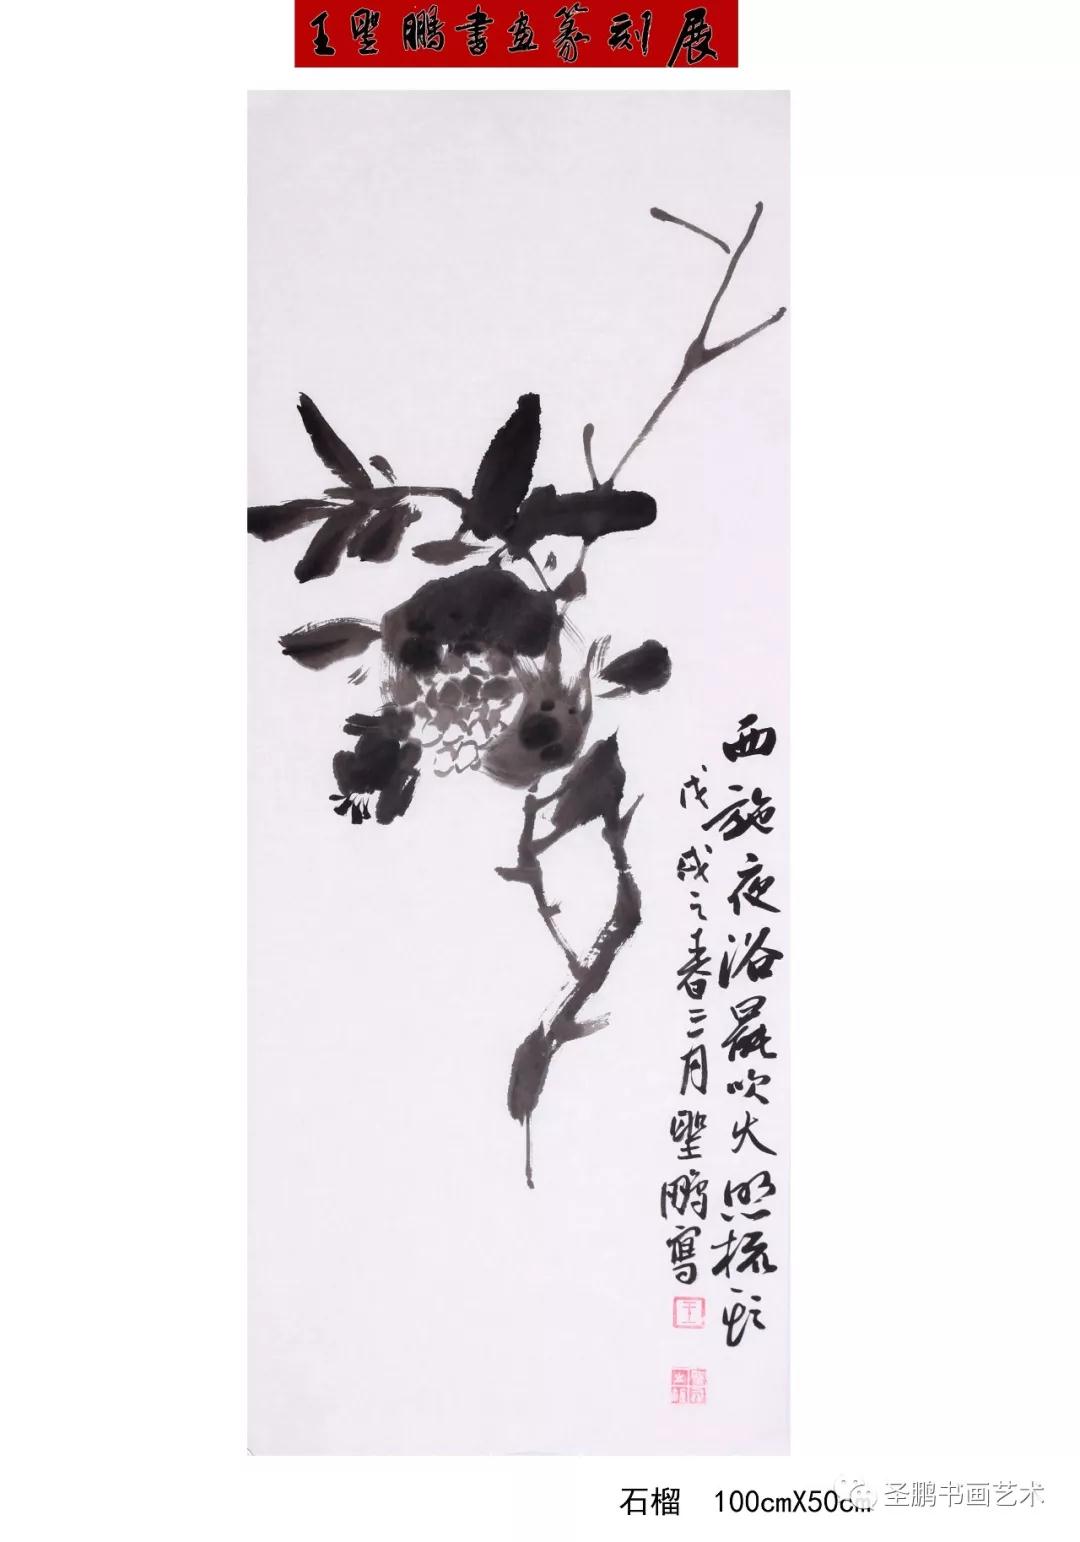 王聖鵬書画篆刻展
西施夜浴罷吹火照梳頭
戊戌之春二月聖鵬寫
王
石榴 100cmX50cm
圣鹏书画艺术